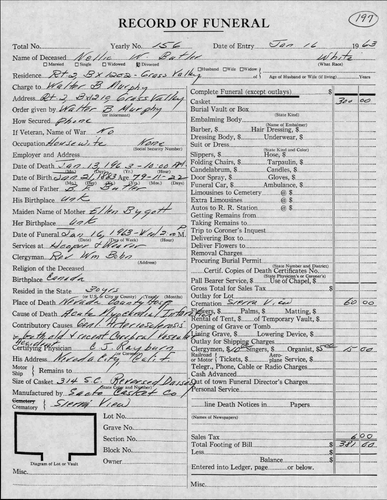 RECORD OF FUNERAL
197
Total No. Yearly No. 156 Date of Entry Jan 16 1963
Name of Deceased Nellie W. Butler White
Married Single Widowed Divorced Husband Wife Widow (What Race)
Residence Rt 2, Bx 1202 - Grass Valley Age of Husband or Wife (if living) Years
Charge to Walter B Murphy
Address Rt. 2, Bx 1219 Grass Valley
Order given by Walter B Murphy
or informant
How Secured Phone
If Veteran, Name of War No
Occupation Housewife None
(Social Security Number)
Employer and Address
Date of Death Jan 13, 1963 - 10:00 PM
Date of Birth Jan 21, 1883 Age 79-11-22
Name of Father
His Birthplace Unk
Maiden Name of Mother Ellen Bygott
Her Birthplace Unk
Date of Funeral Jan 16, 1963 - Wed 2 PM
Services at Hooper & Weaver
Clergyman Rev Wm Bohn
Religion of the Deceased
Birthplace Canada
(Years) (Months)
Resided in the State
in U.S. & City or County
Place of Death Nevada County Hosp
Cause of Death Acute Myocardial
Contributory Causes
Certifying Physician
His Address Nevada City Calif
Motor Ship Remains to
Size of Casket 314 SC
(State Color and Number)
Manufactured by Casket Co
Cemetery
Crematory Sierra View
Lot No.
Grave No.
Section No.
Block No.
Owner
Diagram of Lot or Vault
Misc.
Complete Funeral (except outlays) $
Casket 300 00
Burial Vault or Box
(State Kind)
Embalming Body
(Name of Embalmer)
Barber, $ Hair Dressing, $
Dressing Body, $ Underwear, $
Suit or Dress
(State Kind and Color)
Slippers, $ Hose, $
Folding Chairs, $ Tarpaulin, $
Candelabrum, $ Candles, $
Door Spray, $ Gloves, $
Funeral Car, $ Ambulance, $
Limousines to Cemetery @ $
Extra Limousines @ $
Autos to R. R. Station @ $
Getting Remains from
Taking Remains to
Trip to Coroner's Inquest
Delivering Box to
Deliver Flowers to
Removal Charges
Procuring Burial Permit
(State Number and District)
Certif. Copies of Death Certificates No.
(State Physician's or Coroner's)
Pall Bearer Service, $ Use of Chapel, $
Gross Total for Sales Tax $
Outlay for Lot
Cremation Sierra View 60 00
Flowers, $ Palms, $ Matting, $
Rental of Tent, $ of Temporary Vault, $
Opening of Grave or Tomb
Lining Grave, $ Lowering Device, $
Outlay for Shipping Charges
Clergyman, $10.00 Singers, $ Organist, $5.00 15 00
Railroad Motor Tickets, $ Aeroplane Service, $
Telegr., Phone, Cable or Radio Charges
Cash Advanced
Out of town Funeral Director's Charges
Personal Service
line Death Notices in Papers
(Names of Newspapers)
Sales Tax 6 00
Total Footing of Bill $ 381 00
Less
Balance $
Entered into Ledger, page or below.
Misc.